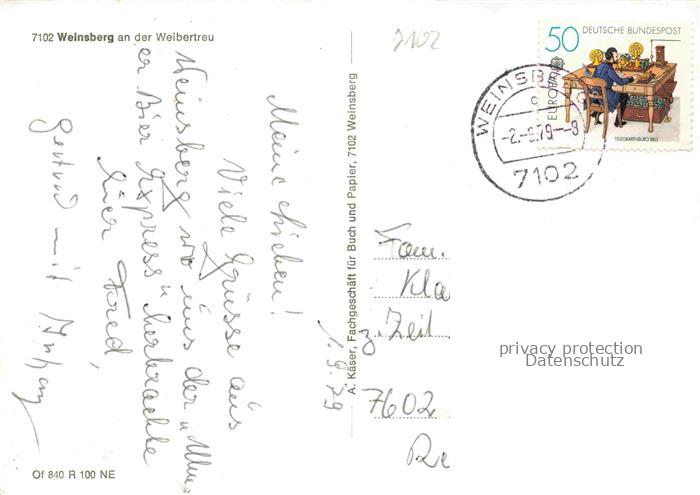 7102 Weinsberg an der Weibertreu
7102
Meine Lieben!
Viele Grüsse aus
Weinsberg wo uns der u Ulm-
er Bier Express u herbrachte
Euer Fred
Gertrud mit Anhang
1.9.79
A. Käser, Fachgeschäft für Buch und Papier, 7102 Weinsberg
Of 840 R 100 NE
50 DEUTSCHE BUNDESPOST
EUROPA
TELEGRAFENBÜRO 1863
WEINSB
-2.-9.79--8
7102
Fam.
Kla
z. Zeit
7602
Re
privacy protection
Datenschutz